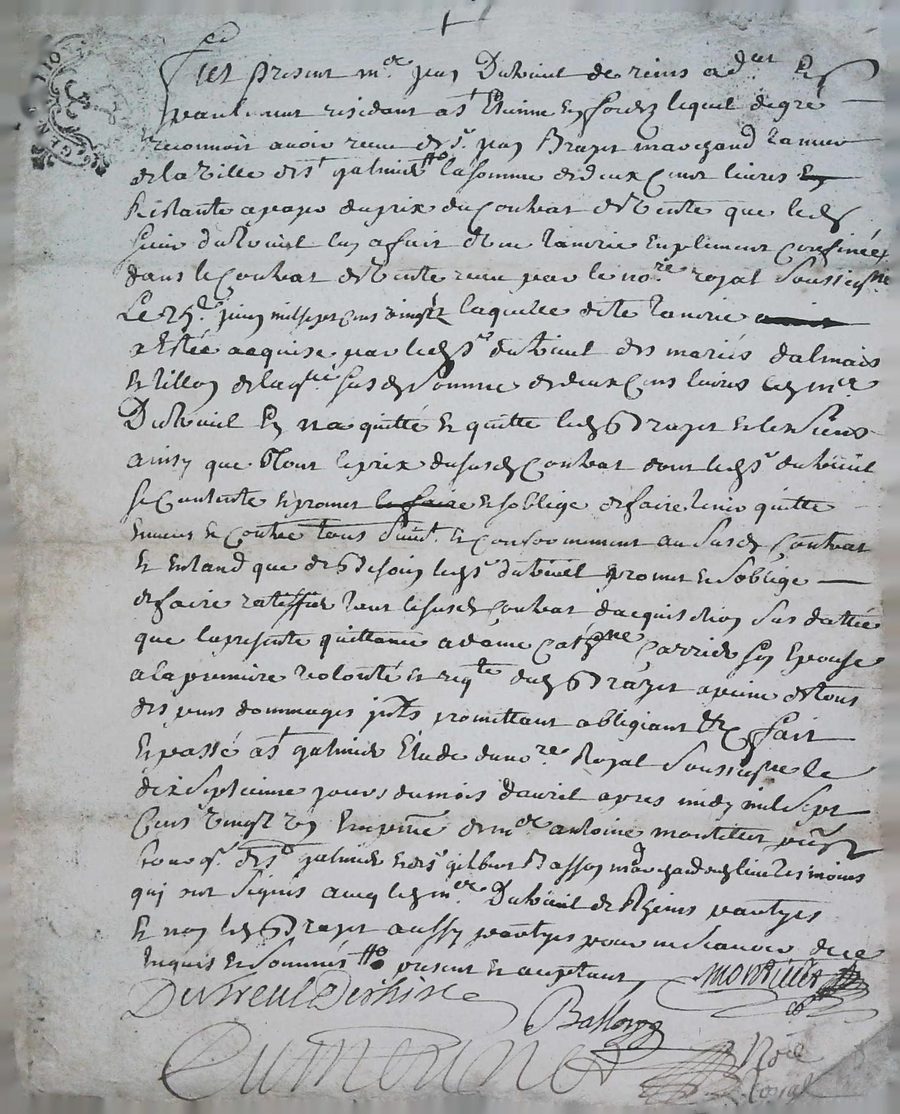 fut present me Jean Dutreuil de reins advat En
parlement residant a st Etienne En forez lequel de gré
reconnoit avoir receu de sr Jean Brazet marchand tanneur
de la ville de st galmier la somme de deux Cent livres
Restante a payer du prix du Contrat de Vente que led
sieur dutreuil luy a fait d'une tannerie Emplement Confinée
dans le Contrat de Vente receu par le nore royal Soussigné
Le 25e juin mil sept Cens vingt laquelle dite tannerie
a Estée acquise par led sr dutreuil des mariés dalmais
Et tillon de laqlle susd Somme de deux Cens livres led me
Dutreuil En n'a quitté Et quitte led Brazet Et les siens
ainsy que pour le prix du susd Contrat dont led sr dutreuil
se Contente Et promet Et soblige de faire tenir quitte
Envers Et Contre tous Et Conformement au susd Contrat
Et En tand que de Besoin led sr dutreuil promet Et soblige
de faire ratiffier tant le susd Contrat dacquisition sus dattée
que la presente quittance a dame Cathne Carrier son Epouse
a la premiere volonté Et reqte dud Brazet a peine de tous
despens dommages promettant obligeant &c fait
Et passé a st galmier Etude du nore Royal Soussigné le
dix septieme jour du mois d'avril apres midy mil sept
Cens vingt un En pnce de me antoine montellier
de st galmier Et de sr gilbert Basson marchand dud lieu tesmoins
qui ont signés avec led me Dutreuil de Rheins partyes
Et non led Brazet aussy partyes pour ne scavoir de ce
Enquis Et sommés present Et acceptant
Dutreul Derhins
montellier
Basson
Nore
royal